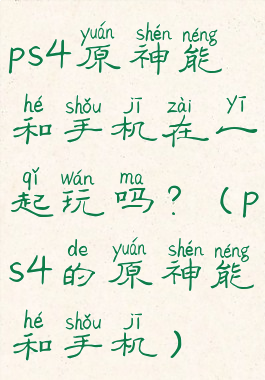 yuán shén néng
ps4原神能
hé shǒu jī zài yī
和手机在一
qǐ wán ma
起玩吗？（p
de yuán shén néng
s4的原神能
hé shǒu jī
和手机）